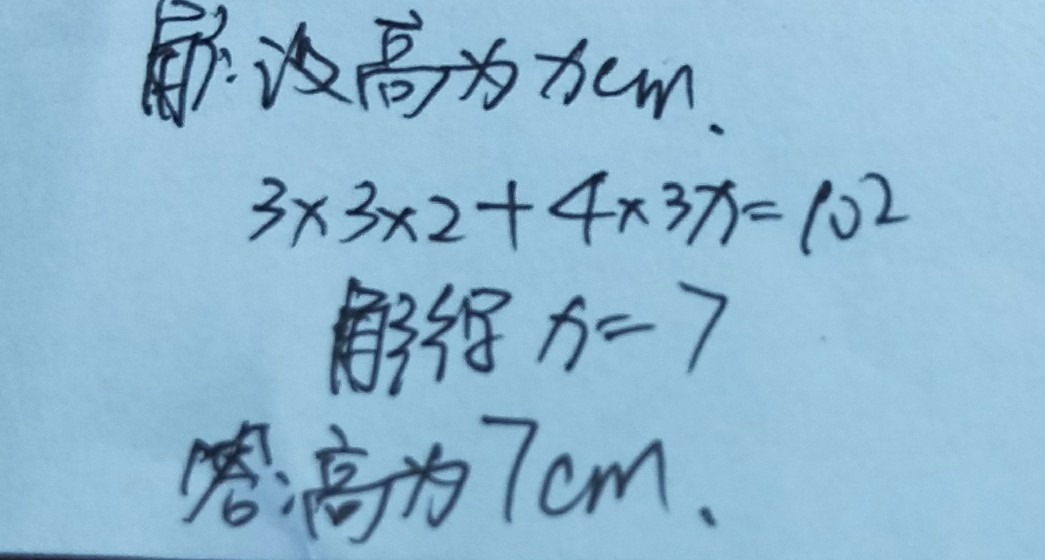 解:设高为xcm.
3×3×2+4×3x=102
解得x=7
答:高为7cm.